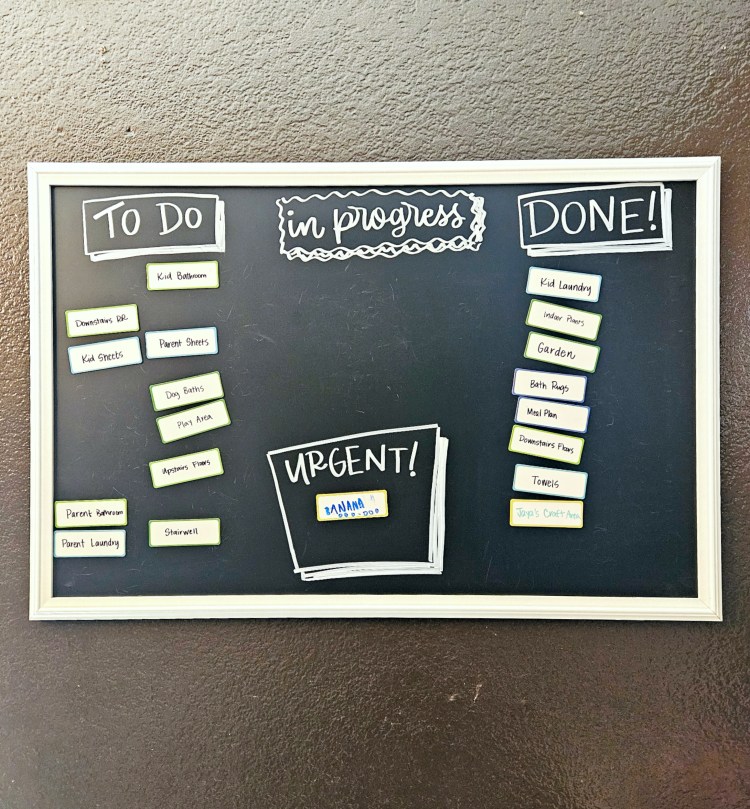 TO DO
Kid Bathroom
Downstairs BR
Kid Sheets
Parent Sheets
Dog Baths
Play Area
Upstairs Floors
Parent Bathroom
Parent Laundry
Stairwell
in progress
URGENT!
BANANA
DONE!
Kid Laundry
Garden
Bath Rugs
Meal Plan
Downstairs Floors
Towels
Craft Area